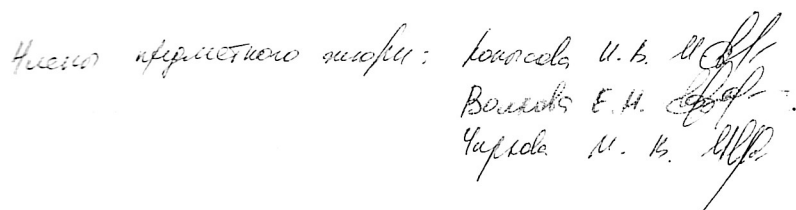 Члены предметного жюри: Копысова И. В.
Волкова Е. Н.
Чиркова М. В.